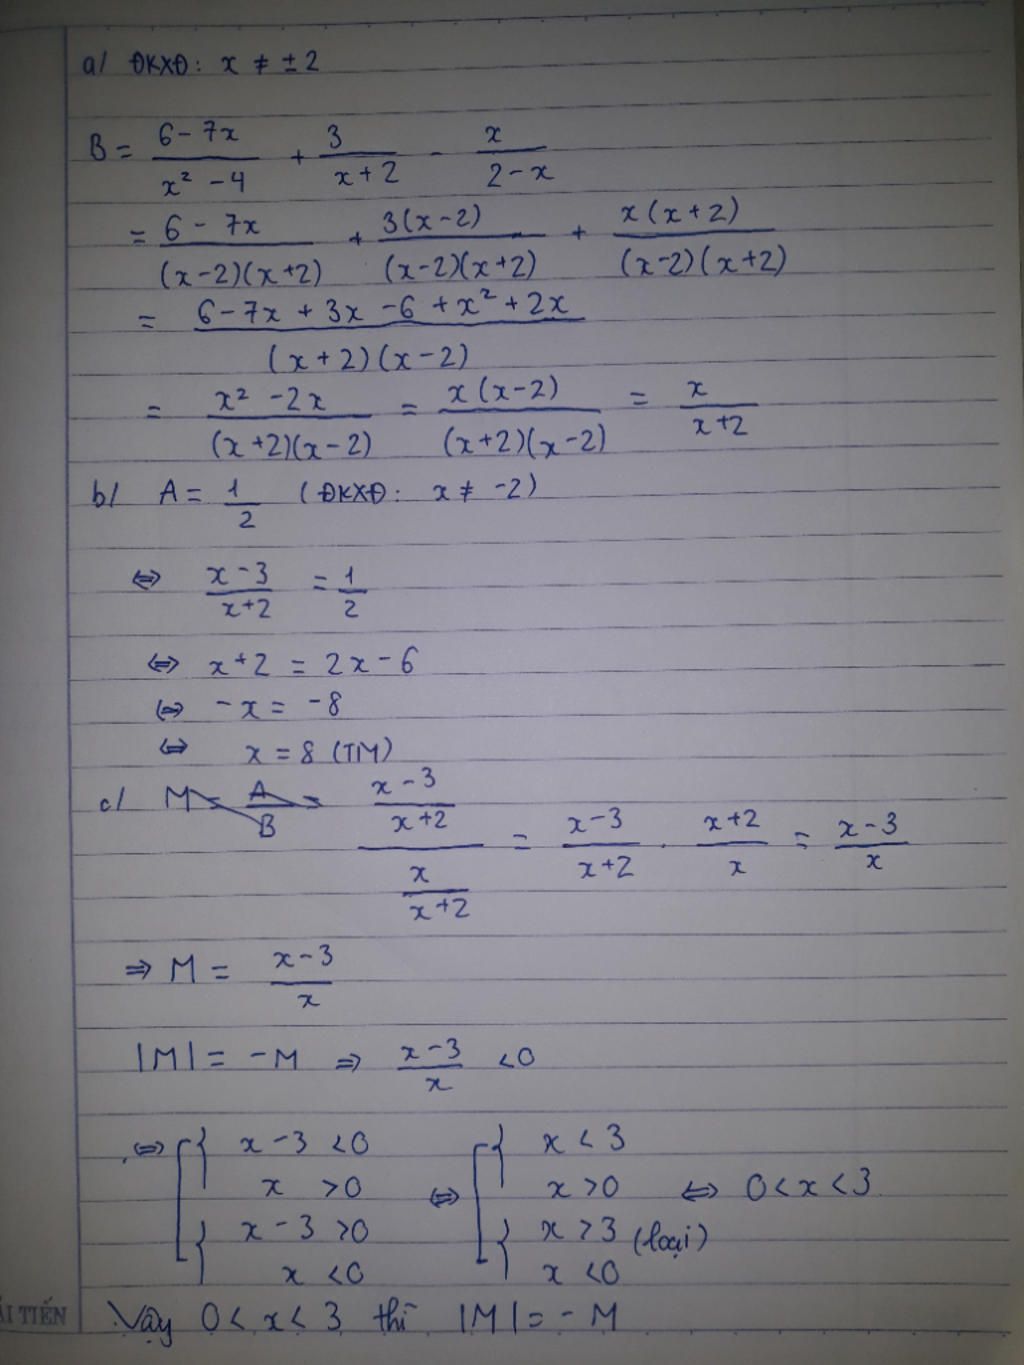 a/ ĐKXĐ: x ≠ ± 2
B = (6 - 7x)/(x² - 4) + 3/(x + 2) - x/(2 - x)
= (6 - 7x)/((x-2)(x+2)) + 3(x-2)/((x-2)(x+2)) + x(x+2)/((x-2)(x+2))
= (6 - 7x + 3x - 6 + x² + 2x)/((x+2)(x-2))
= (x² - 2x)/((x+2)(x-2)) = x(x-2)/((x+2)(x-2)) = x/(x+2)
b/ A = 1/2 (ĐKXĐ: x ≠ -2)
⇔ (x-3)/(x+2) = 1/2
⇔ x+2 = 2x-6
⇔ -x = -8
⇔ x = 8 (TM)
c/ M = A/B = ((x-3)/(x+2))/(x/(x+2)) = (x-3)/(x+2) . (x+2)/x = (x-3)/x
⇒ M = (x-3)/x
|M| = -M ⇒ (x-3)/x <0
⇔ [ { x-3 <0 ⇔ [ { x < 3
x >0 x >0 ⇔ 0<x<3
{ x-3 >0 { x >3 (loại)
x <0 x <0
Vậy 0<x<3 thì |M| = -M
ẢI TIẾN